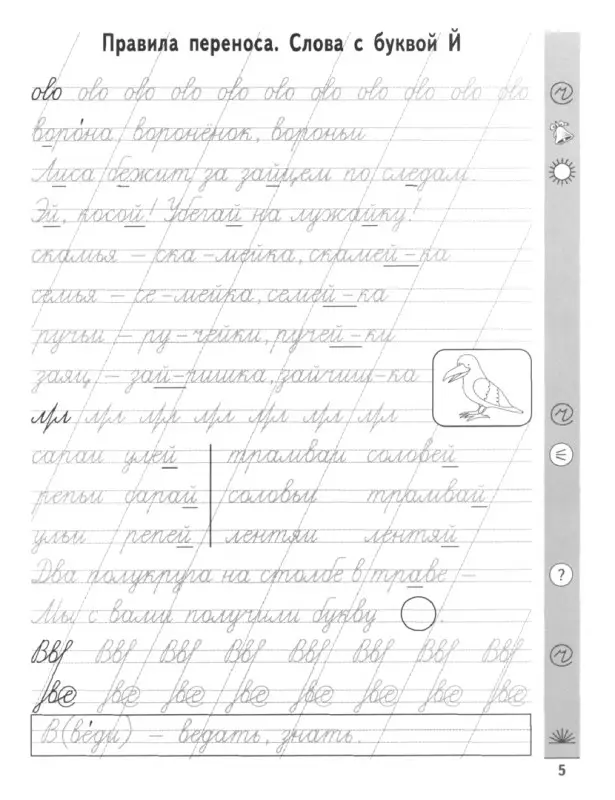 Правила переноса. Слова с буквой Й
ово ово ово ово ово ово ово ово ово ово ово
воро́на, воронёнок, вороны
Лиса бежит за зайцем по следам.
Эй, косой! Убегай на лужайку!
скамья – ска-мейка, скамей-ка
семья – се-мейка, семей-ка
ручьи – ру-чейки, ручей-ки
заяц – зай-чишка, зайчиш-ка
сараи улей трамваи соловей
репьи сарай соловьи трамвай
ульи репей лентяи лентяй
Два полукруга на столбе в траве –
Мы с вами получили букву .
В (ве́ди) – ведать, знать.
?
5